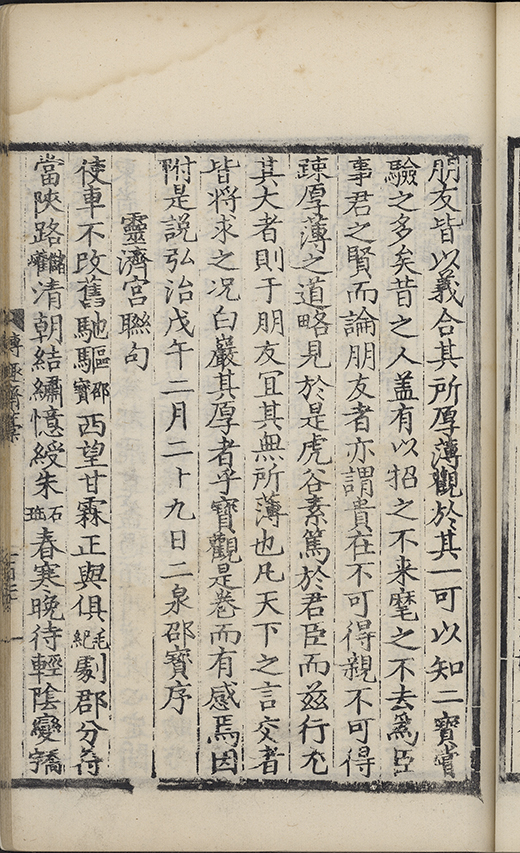 朋友皆以義合其所厚薄觀於其一可以知二寶嘗
驗之多矣昔之人盖有以招之不来麾之不去爲臣
事君之賢而論朋友者亦謂貴在不可得親不可得
踈厚薄之道略見於是虎谷素篤於君臣而兹行尤
其大者則于朋友冝其無所薄也凡天下之言交者
皆將求之况白巖其厚者乎寶觀是卷而有感焉因
附是説弘治戊午二月二十九日二泉邵寶序
靈濟宮聯句
使車不改舊馳驅邵寶西望甘霖正與俱毛紀劇郡分符
當陜路儲巏清朝結綬憶朱石珤春寒晚待輕陰變喬